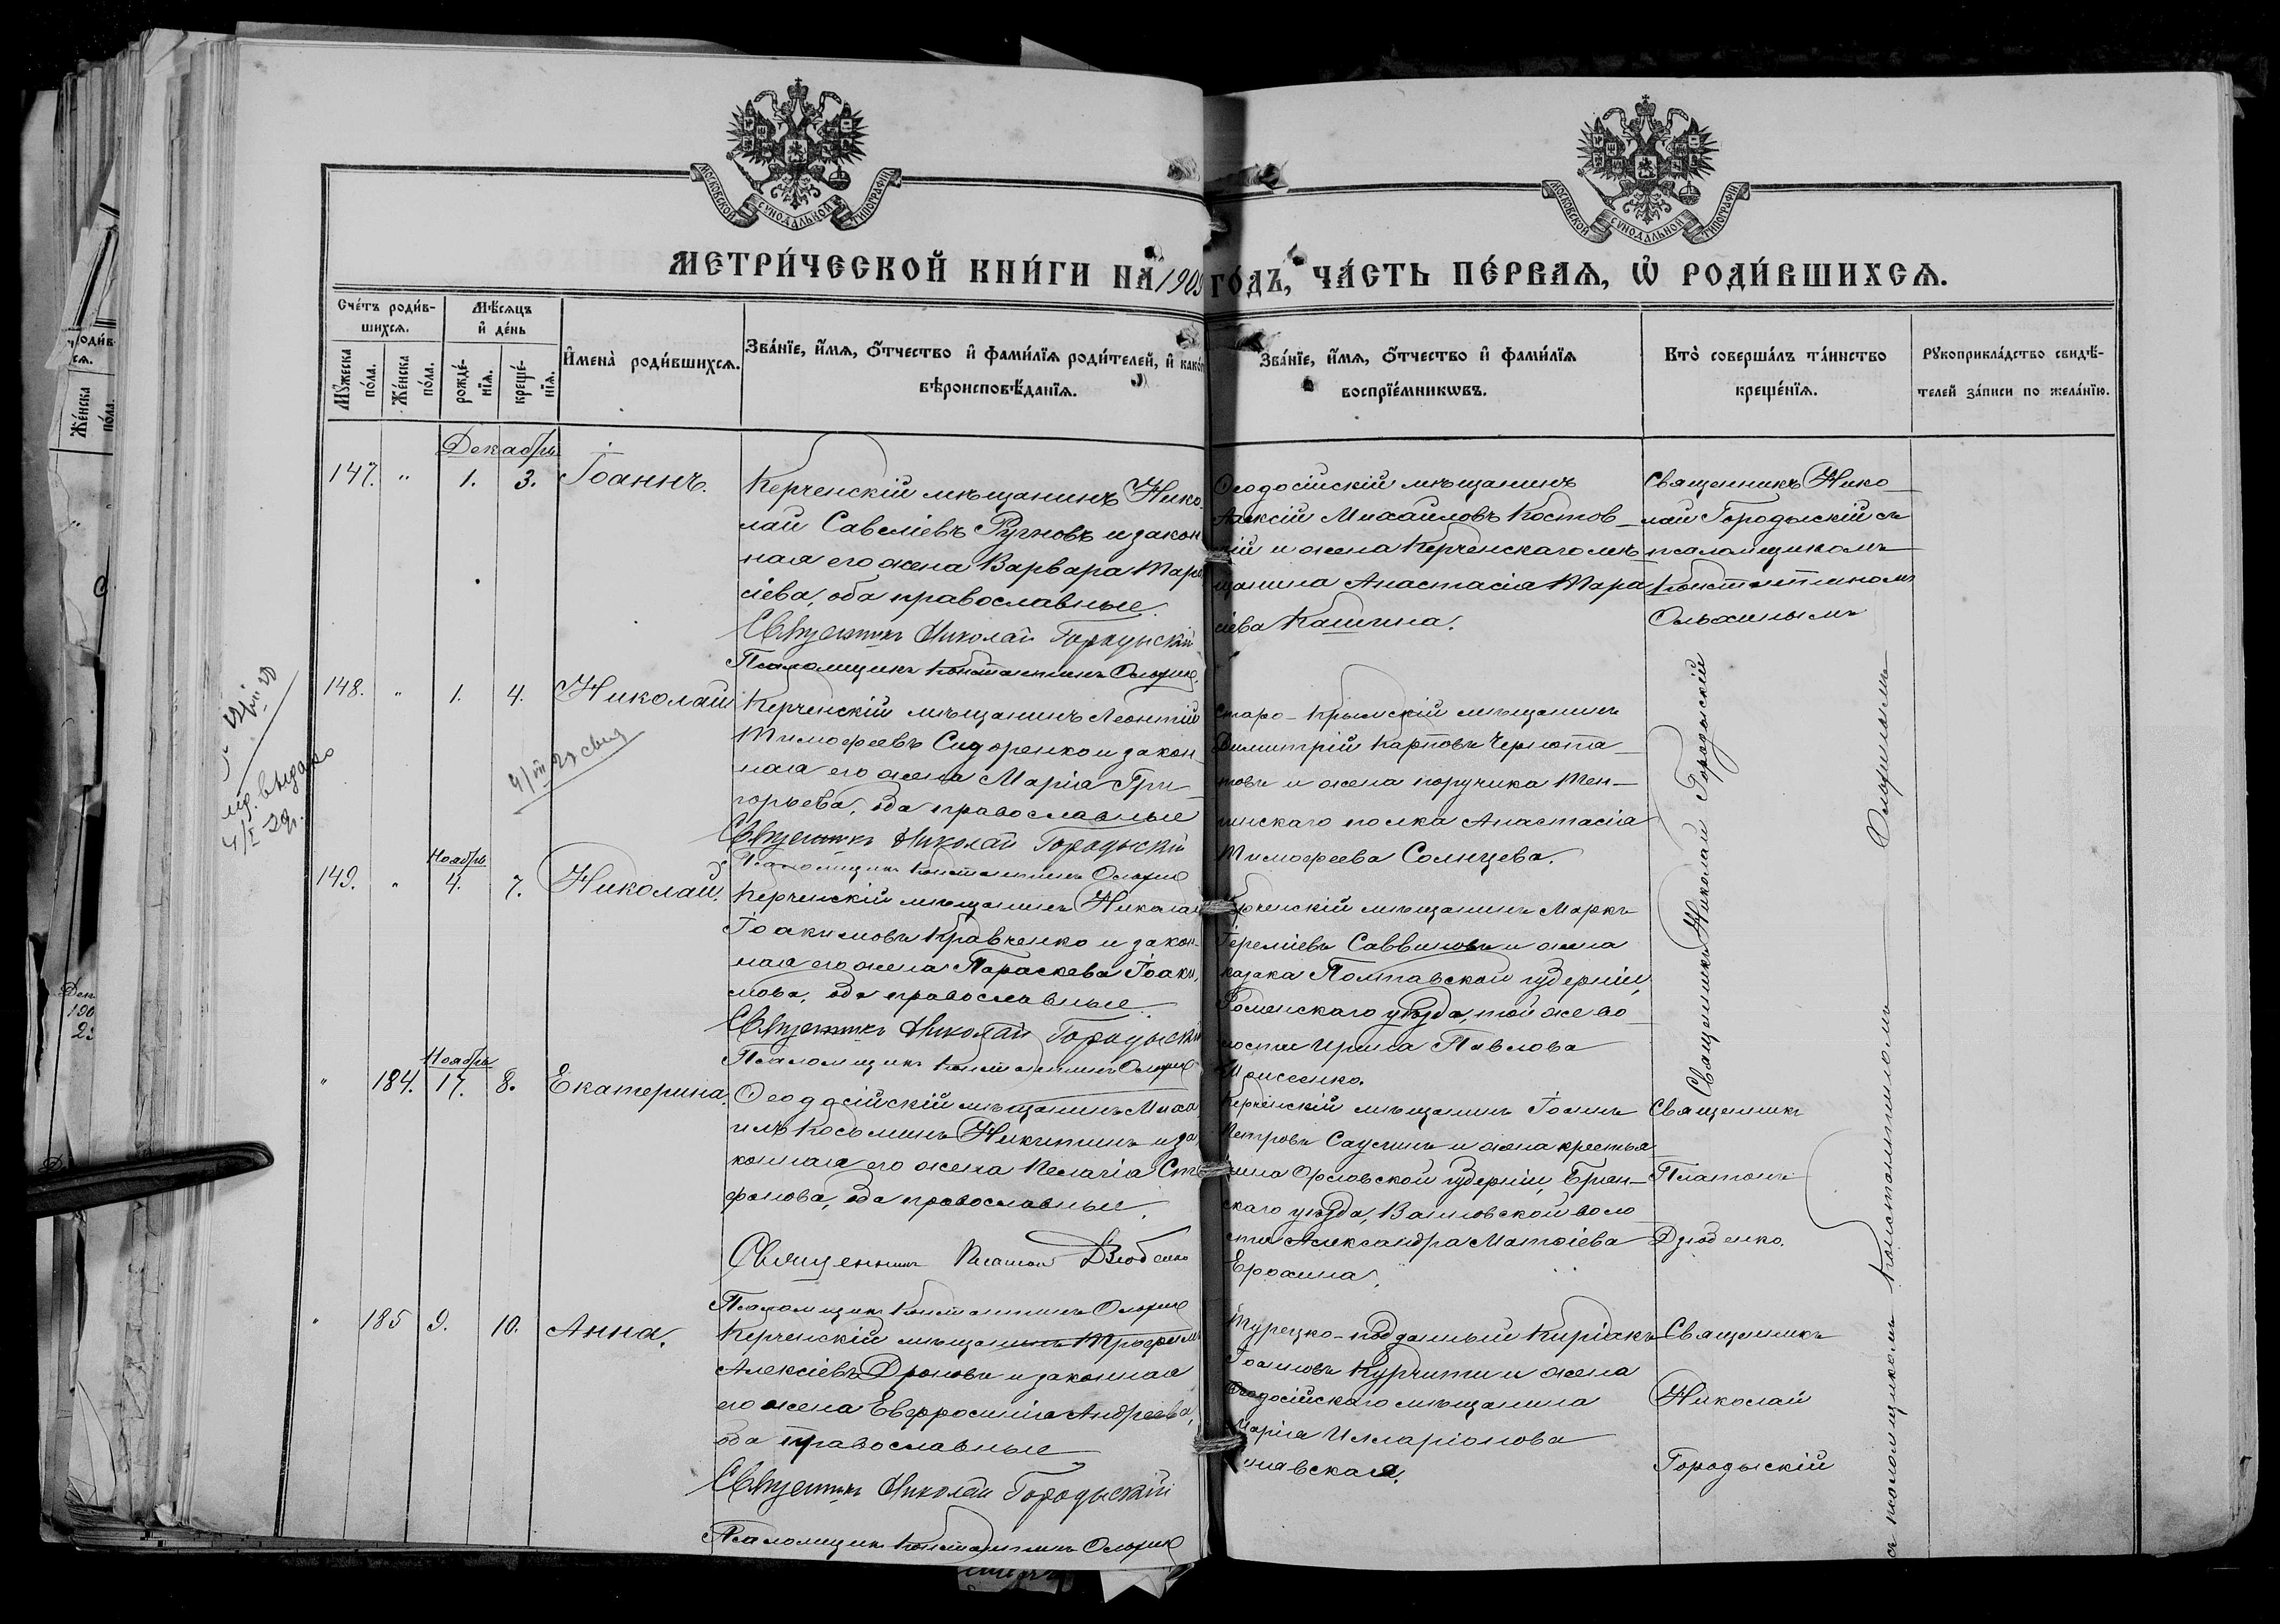 МОСКОВСКОЙ СѴНОДАЛЬНОЙ ТИПОГРАФІИ
МОСКОВСКОЙ СѴНОДАЛЬНОЙ ТИПОГРАФІИ
МЕТРИ́ЧЕСКОЙ КНИ́ГИ НА 1909 ГО́ДЪ, ЧА́СТЬ ПЕ́РВАЯ, Ѡ РОДИ́ВШИХСЯ.
Сче́тъ роди́в-
шихся.
Мѣ́сяцъ
и де́нь
Мꙋ́жеска
по́ла.
Же́нска
по́ла.
рожде́-
нїя.
креще́-
нїя.
Имена̀ роди́вшихся.
Зва́нїе, и́мя, о́тчество и фами́лїя роди́телей, и како́
вѣроисповѣ́данїя.
Зва́нїе, и́мя, о́тчество и фами́лїя
воспрїе́мникѡвъ.
Кто̀ соверша́лъ та́инство
креще́нїя.
Рꙋкоприкла́дство свидѣ́-
телей за́писи по жела́нїю.
Декабрь
147. " 1. 3. Іоаннъ.
Керченскій мѣщанинъ Нико-
лай Савеліевъ Ругновъ и закон
ная его жена Варвара Тара
сіева, оба православные.
Священникъ Николай Городыскій
Псаломщикъ Константинъ Ольхинъ
Ѳеодосійскій мѣщанинъ
Алексій Михайловъ Костов-
кій и жена Керченскаго мѣ-
щанина Анастасія Тара
сіева Кашина.
Священникъ Нико-
лай Городыскій съ
псаломщикомъ
Константиномъ
Ольхинымъ
148. " 1. 4. Николай
4/III 29 свид
выдано
Керченскій мѣщанинъ Леонтій
Тимофеевъ Сидоренко и закон
ная его жена Марія Гри-
горьева, оба православные
Священникъ Николай Городыскій
Псаломщикъ Константинъ Ольхинъ
Старо-Крымскій мѣщанинъ
Димитрій Карповъ
и жена поручика Тен-
гинскаго полка Анастасія
Тимофеева Солнцева.
Ноябрь
149. " 4. 7. Николай.
Керченскій мѣщанинъ Николай
Іоакимовъ Кравченко и закон-
ная его жена Параскева Іоаки-
мова, оба православные.
Священникъ Николай Городыскій
Псаломщикъ Константинъ Ольхинъ
Керченскій мѣщанинъ Маркъ
Іереміевъ Саввиновъ и жена
казака Полтавской губерніи,
Роменскаго уѣзда, той же во-
лости Ирина Павлова
Священникъ Николай Городыскій
Ноябрь
" 184. 17. 8. Екатерина.
Ѳеодосійскій мѣщанинъ Миха
илъ Косьминъ Никитинъ и за-
конная его жена Пелагія Сте
фанова, оба православные.
Священникъ Платонъ Дзюбенко
Псаломщикъ Константинъ Ольхинъ
Керченскій мѣщанинъ Іоаннъ
Петровъ и жена крестья
нина Орловской губерніи, Брян-
скаго уѣзда, воло
сти Александра Матѳіева
Ерохина.
Священникъ
Платонъ
Дзюбенко.
" 185 9. 10. Анна.
Керченскій мѣщанинъ Трофимъ
Алексіевъ Дроновъ и законная
его жена Евфросинія Андреева,
оба православные
Священникъ Николай Городыскій
Псаломщикъ Константинъ Ольхинъ
Турецко-подданный Киріакъ
Іоанновъ Курчити и жена
Ѳеодосійскаго мѣщанина
Марія Илларіонова
Священникъ
Николай
Городыскій
съ псаломщикомъ Константиномъ Ольхинымъ